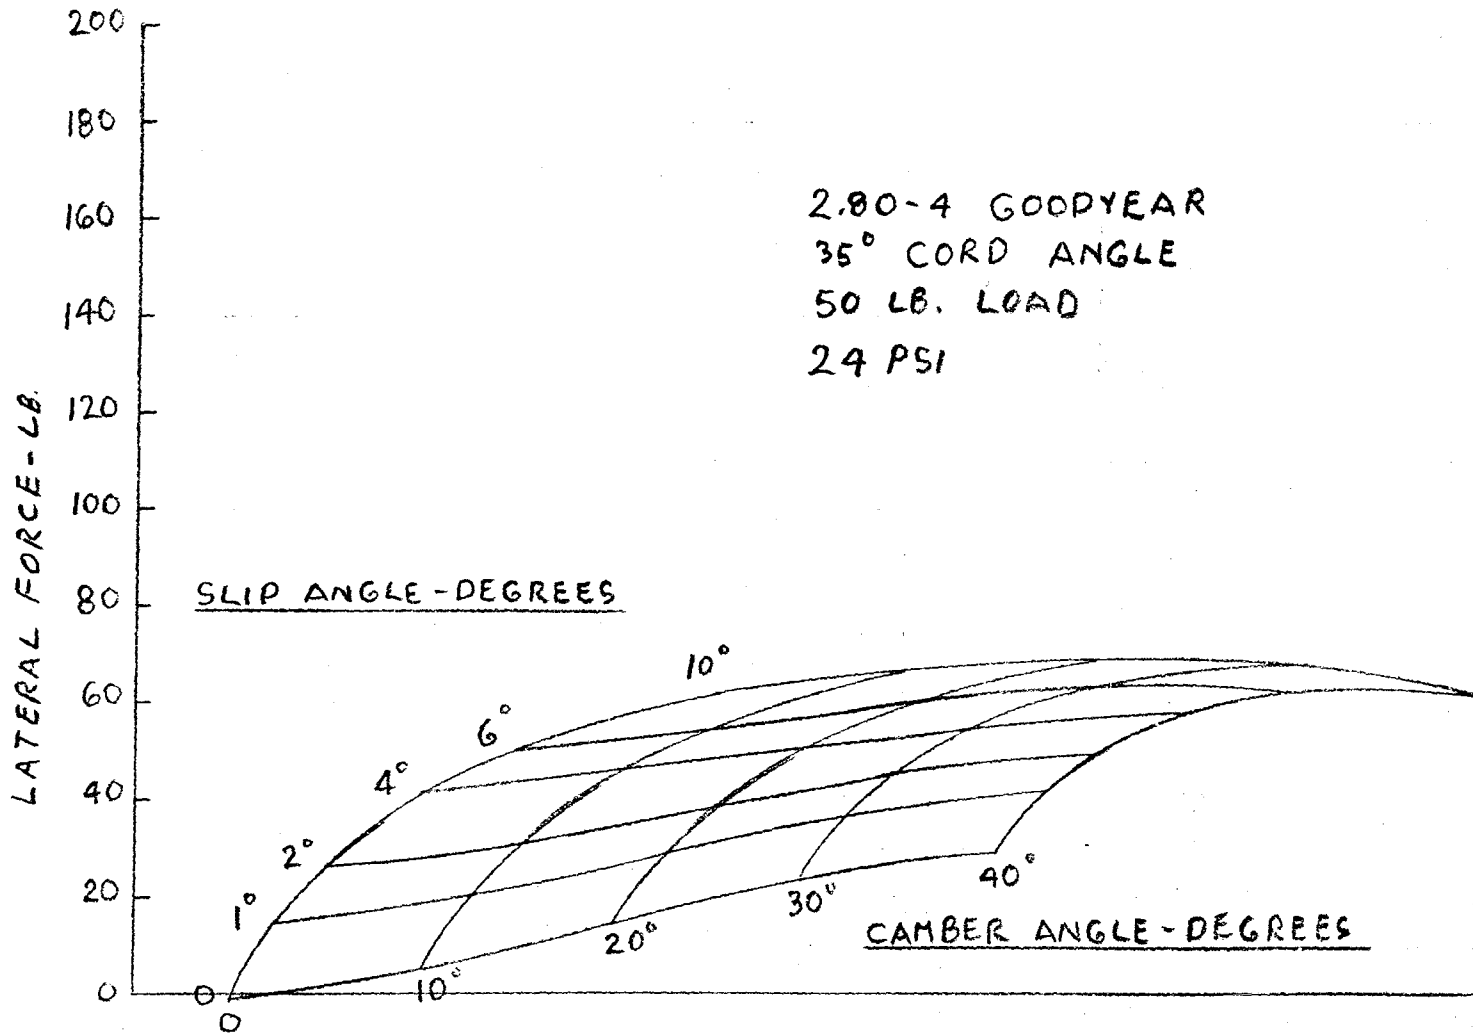 200
180
160
140
120
100
80
60
40
20
0
LATERAL FORCE-LB.
2.80-4 GOODYEAR
35° CORD ANGLE
50 LB. LOAD
24 PSI
SLIP ANGLE-DEGREES
10°
6°
4°
2°
1°
0
0
10°
20°
30°
40°
CAMBER ANGLE-DEGREES